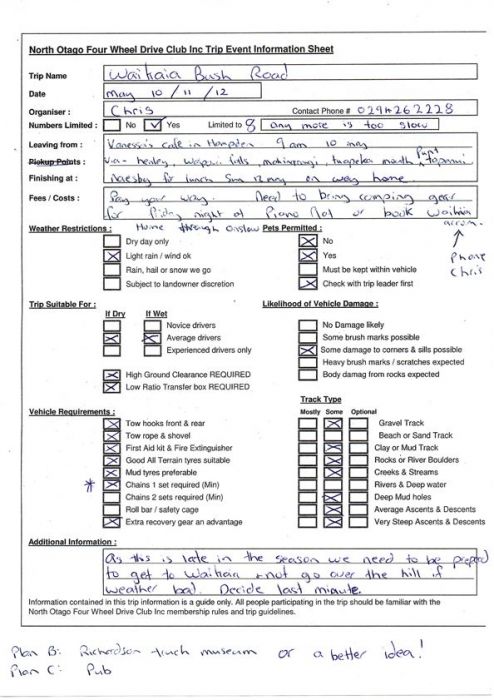 North Otago Four Wheel Drive Club Inc Trip Event Information Sheet
Trip Name Waihaia Bush Road
Date May 10 / 11 / 12
Organiser : Chris Contact Phone #
Numbers Limited : No Yes Limited to 8 any more is too slow
Leaving from : cafe in Hampden 9am 10 may
Pickup Points : Via - falls,
Finishing at : Naesby for lunch Sun 12 may on way home
Fees / Costs : Pay your way. Need to bring camping gear
for Friday night at Piano flat or book
Home through Onslow accom.
Weather Restrictions : Pets Permitted :
Dry day only No
Light rain / wind ok Yes
Rain, hail or snow we go Must be kept within vehicle
Subject to landowner discretion Check with trip leader first
Phone
Chris
Trip Suitable For : Likelihood of Vehicle Damage :
If Dry If Wet
Novice drivers No Damage likely
Average drivers Some brush marks possible
Experienced drivers only Some damage to corners & sills possible
Heavy brush marks / scratches expected
High Ground Clearance REQUIRED Body damag from rocks expected
Low Ratio Transfer box REQUIRED
Track Type
Vehicle Requirements : Mostly Some Optional
Tow hooks front & rear Gravel Track
Tow rope & shovel Beach or Sand Track
First Aid kit & Fire Extinguisher Clay or Mud Track
Good All Terrain tyres suitable Rocks or River Boulders
Mud tyres preferable Creeks & Streams
* Chains 1 set required (Min) Rivers & Deep water
Chains 2 sets required (Min) Deep Mud holes
Roll bar / safety cage Average Ascents & Descents
Extra recovery gear an advantage Very Steep Ascents & Descents
Additional Information :
As this is late in the season we need to be
to get to + not go over the hill if
weather bad. Decide last minute.
Information contained in this trip information is a guide only. All people participating in the trip should be familiar with the
North Otago Four Wheel Drive Club Inc membership rules and trip guidelines.
Plan B: Richardson truck museum or a better idea!
Plan C: Pub